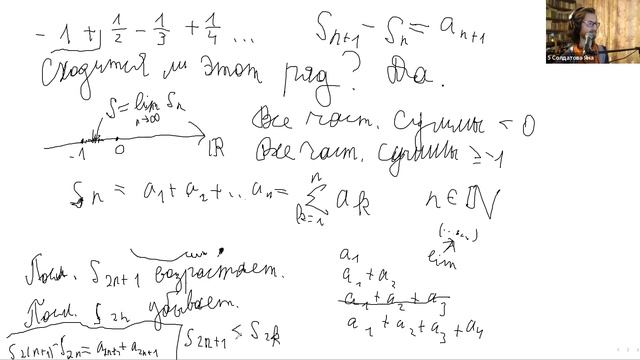 - 1 + 1/2 - 1/3 + 1/4 ...
S_{n+1} - S_n = a_{n+1}
Сходится ли этот ряд? Да.
S = lim S_n
n→∞
-1 0 ℝ
Все част. суммы < 0
Все част. суммы ≥ -1
S_n = a_1 + a_2 + ... a_n = Σ a_k
n
k=1
n ∈ ℕ
Посл. S_{2n+1} возрастает.
Посл. S_{2n} убывает.
S_{2(n+1)} - S_{2n} = a_{2n+2} + a_{2n+1}
S_{2n+1} ≤ S_{2k}
lim
a_1
a_1 + a_2
a_1 + a_2 + a_3
a_1 + a_2 + a_3 + a_4
S Солдатова Яна